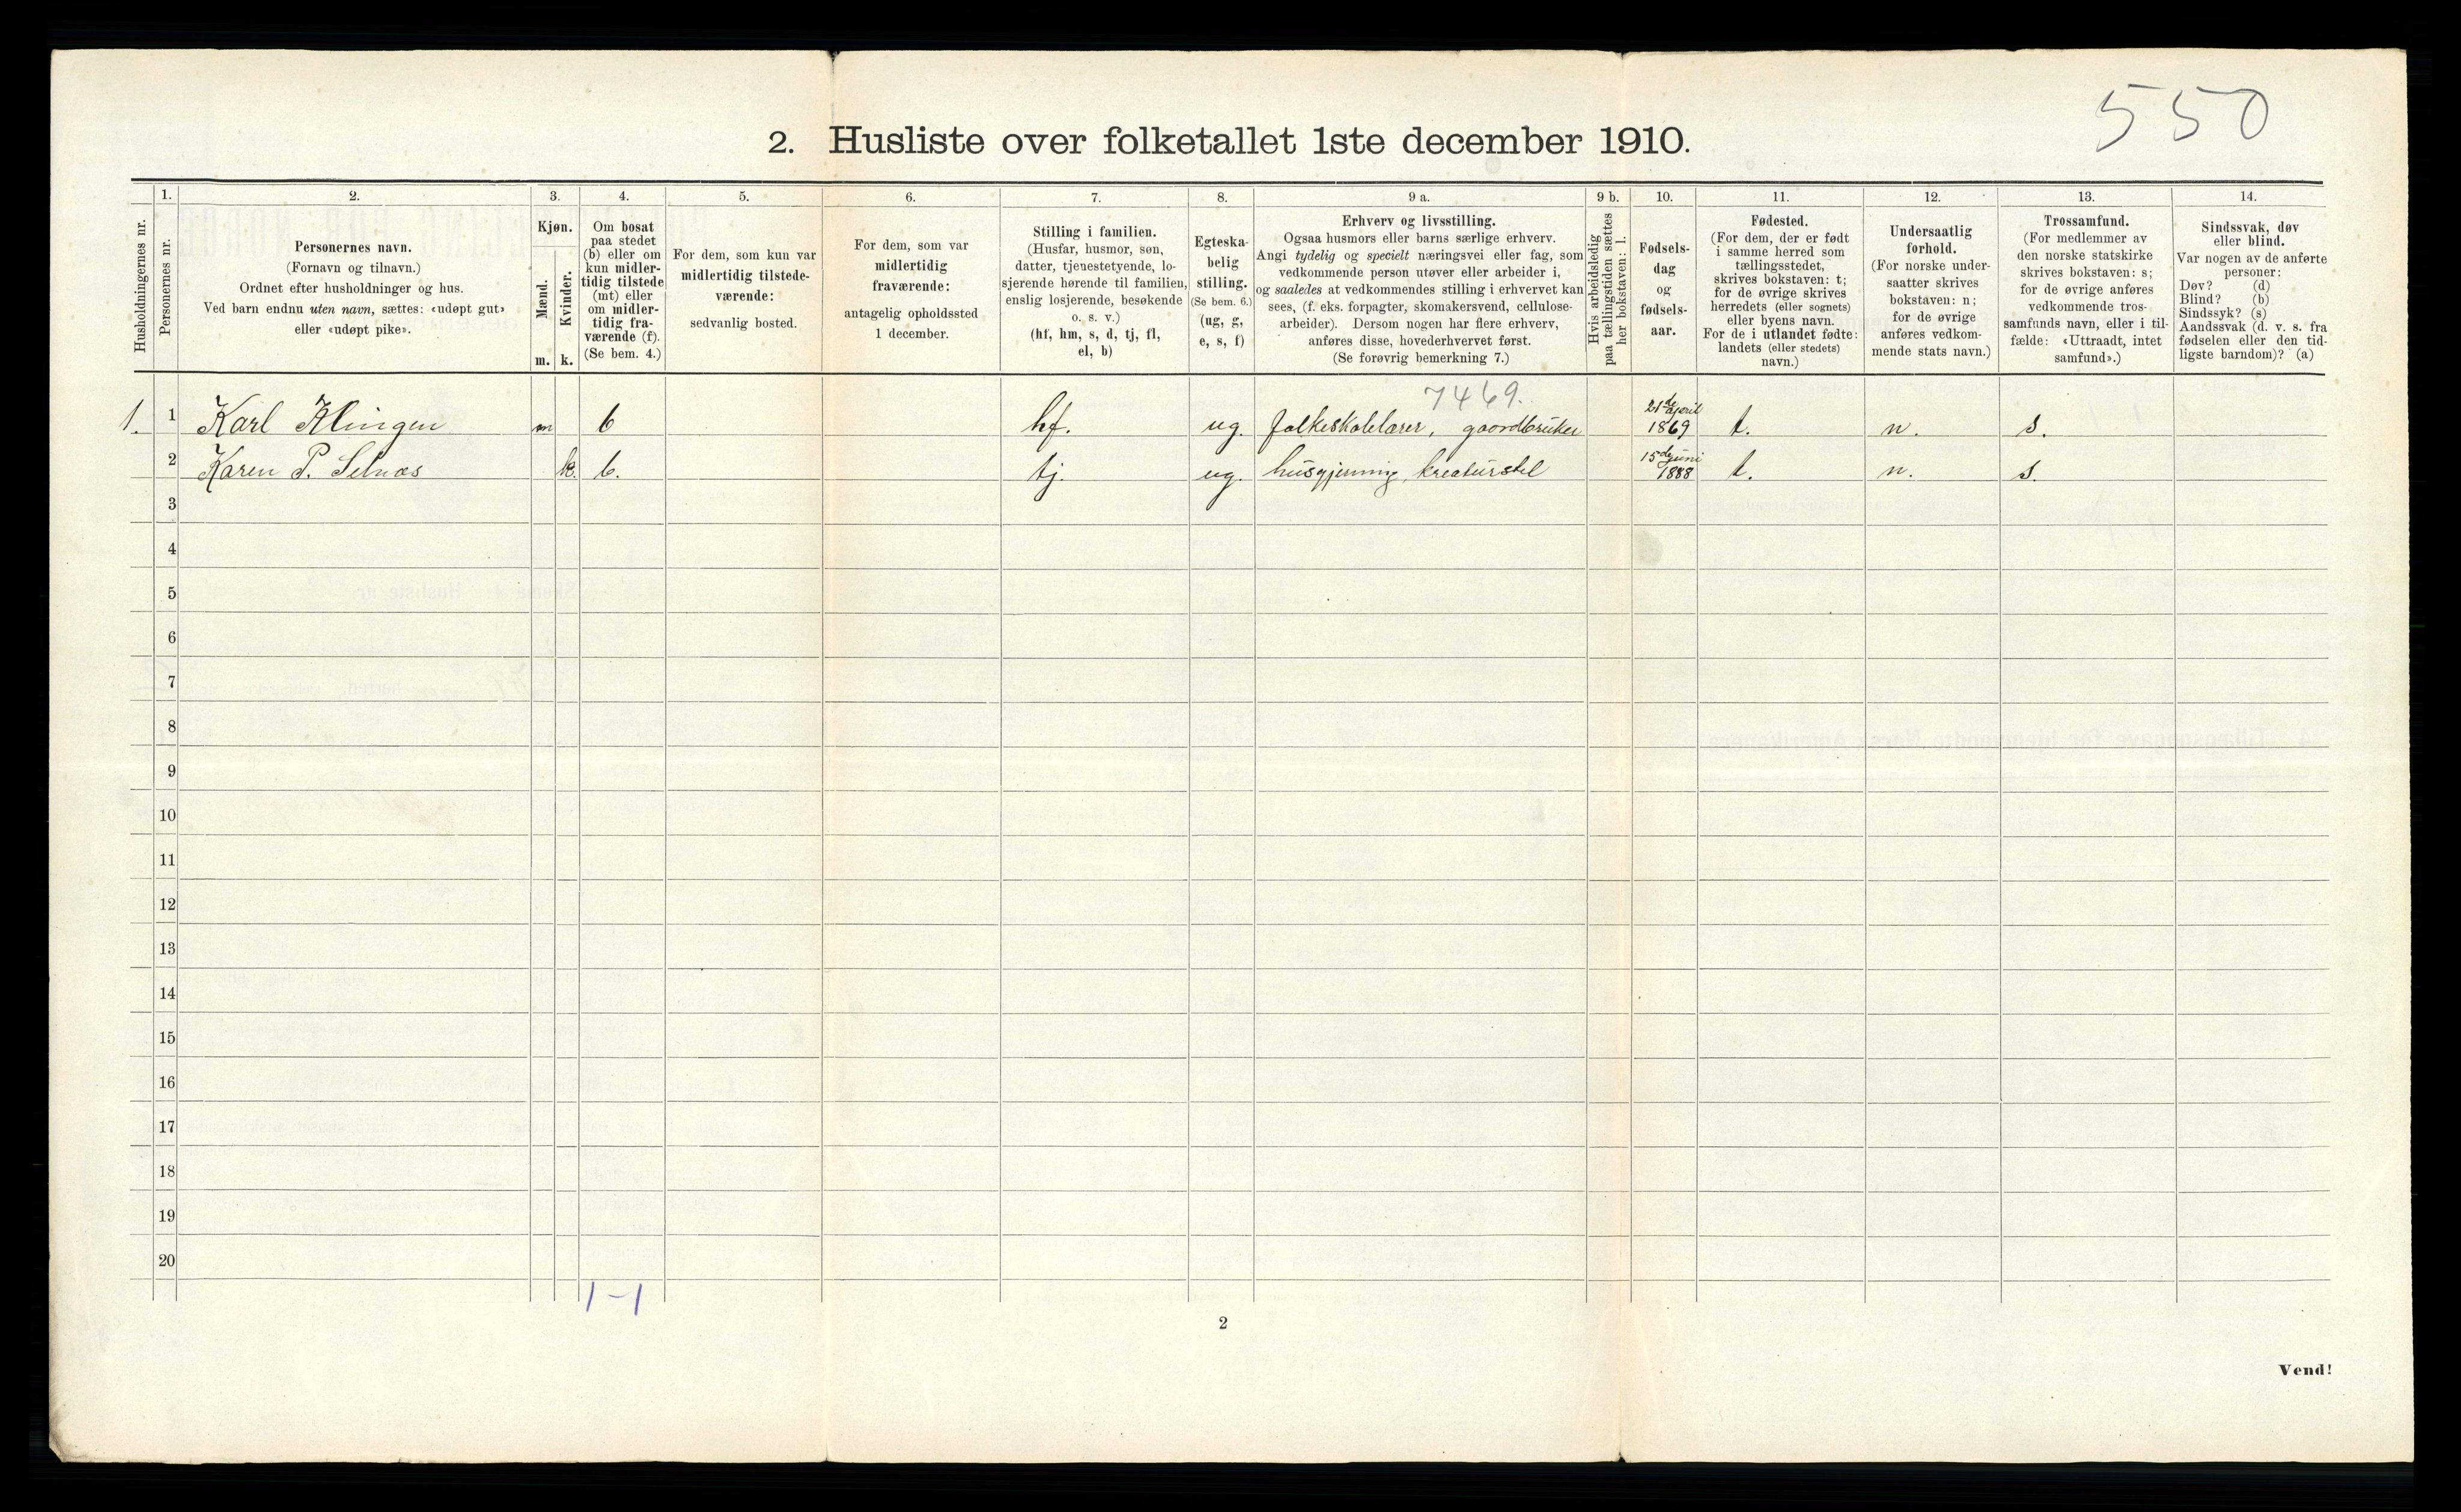 550
2. Husliste over folketallet 1ste december 1910.
Husholdningernes nr.
1.
Personernes nr.
2.
Personernes navn.
(Fornavn og tilnavn.)
Ordnet efter husholdninger og hus.
Ved barn endnu uten navn, sættes: «udøpt gut»
eller «udøpt pike».
3.
Kjøn.
Mænd.
Kvinder.
m. k.
4.
Om bosat
paa stedet
(b) eller om
kun midler-
tidig tilstede
(mt) eller
om midler-
tidig fra-
værende (f).
(Se bem. 4.)
5.
For dem, som kun var
midlertidig tilstede-
værende:
sedvanlig bosted.
6.
For dem, som var
midlertidig
fraværende:
antagelig opholdssted
1 december.
7.
Stilling i familien.
(Husfar, husmor, søn,
datter, tjenestetyende, lo-
sjerende hørende til familien,
enslig losjerende, besøkende
o. s. v.)
(hf, hm, s, d, tj, fl,
el, b)
8.
Egteska-
belig
stilling.
(Se bem. 6.)
(ug, g,
e, s, f)
9 a.
Erhverv og livsstilling.
Ogsaa husmors eller barns særlige erhverv.
Angi tydelig og specielt næringsvei eller fag, som
vedkommende person utøver eller arbeider i,
og saaledes at vedkommendes stilling i erhvervet kan
sees, (f. eks. forpagter, skomakersvend, cellulose-
arbeider). Dersom nogen har flere erhverv,
anføres disse, hovederhvervet først.
(Se forøvrig bemerkning 7.)
9 b.
Hvis arbeidsledig
paa tællingstiden sættes
her bokstaven: l.
10.
Fødsels-
dag
og
fødsels-
aar.
11.
Fødested.
(For dem, der er født
i samme herred som
tællingsstedet,
skrives bokstaven: t;
for de øvrige skrives
herredets (eller sognets)
eller byens navn.
For de i utlandet fødte:
landets (eller stedets)
navn.)
12.
Undersaatlig
forhold.
(For norske under-
saatter skrives
bokstaven: n;
for de øvrige
anføres vedkom-
mende stats navn.)
13.
Trossamfund.
(For medlemmer av
den norske statskirke
skrives bokstaven: s;
for de øvrige anføres
vedkommende tros-
samfunds navn, eller i til-
fælde: «Uttraadt, intet
samfund».)
14.
Sindssvak, døv
eller blind.
Var nogen av de anførte
personer:
Døv? (d)
Blind? (b)
Sindssyk? (s)
Aandssvak (d. v. s. fra
fødselen eller den tid-
ligste barndom)? (a)
7469.
1. 1 Karl Klingen m b hf. ug. folkeskolelærer, gaardbruker 21de april 1869 t. n. s.
2 Karen P. Selnæs k. b. tj. ug. husgjerning, kreaturstel 15de juni 1888 t. n. s.
3
4
5
6
7
8
9
10
11
12
13
14
15
16
17
18
19
20
1-1
2
Vend!